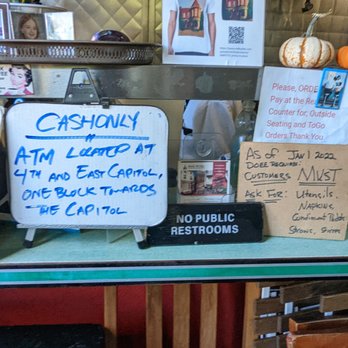 CASH ONLY
ATM LOCATED AT
4TH AND EAST CAPITOL,
ONE BLOCK TOWARDS
THE CAPITOL
Please, ORDER
Pay at the Re
Counter for, Outside
Seating and ToGo
Orders. Thank You.
As of Jan 1 2022
CUSTOMERS MUST
Ask For: Utensils,
NAPKINS,
Condiment Packets
Straws,
NO PUBLIC
RESTROOMS